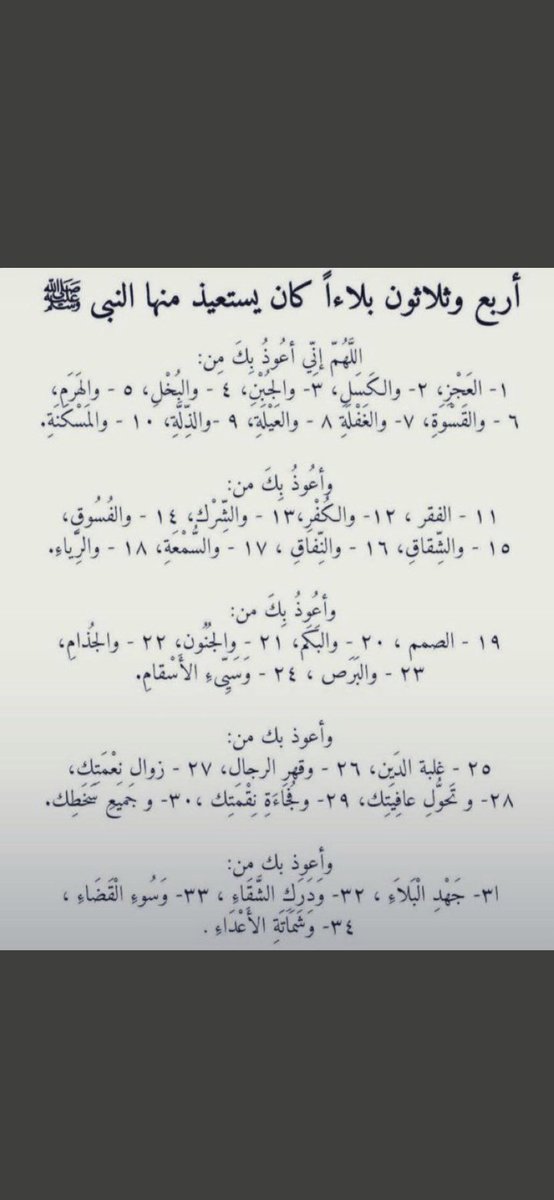 أربع وثلاثون بلاءاً كان يستعيذ منها النبي ﷺ
اللَّهُمّ إنِّي أعُوذُ بِكَ مِن:
١- العَجْزِ، ٢- والكَسَلِ، ٣- والجُبْنِ، ٤ - والبُخْلِ، ٥ - والهَرَمِ،
٦ - والقَسْوَةِ، ٧- والغَفْلَةِ ٨ - والعَيْلَةِ، ٩ -والذِّلَّةِ، ١٠ - والمَسْكَنَةِ.
وأعُوذُ بِكَ من:
١١ - الفقر ، ١٢- والكُفْرِ،١٣ - والشِّرْكِ، ١٤ - والفُسُوقِ،
١٥ - والشِّقاقِ، ١٦ - والنِّفاقِ ، ١٧ - والسُّمْعَةِ، ١٨ - والرِّياءِ.
وأعُوذُ بِكَ من:
١٩ - الصمم ، ٢٠ - والبَكَمِ، ٢١ - والجُنُون، ٢٢ - والجُذامِ،
٢٣ - والبَرَص ، ٢٤ - وَسَيِّيءِ الأَسْقامِ.
وأعوذ بك من:
٢٥ - غلبة الدَين، ٢٦ - وقهرِ الرجالِ، ٢٧ - زوال نِعْمَتِكِ،
٢٨- و تَحوُّلِ عافِيَتِك، ٢٩- وفُجَاءَةِ نِقْمَتِك ،٣٠- و جَميعِ سَخَطِك.
وأعوذ بك من:
٣١- جَهْدِ الْبَلاَءِ ، ٣٢- وَدَرَكِ الشَّقَاءِ ، ٣٣- وَسُوءِ الْقَضَاءِ ،
٣٤- وَشَمَاتَةِ الأَعْدَاءِ .